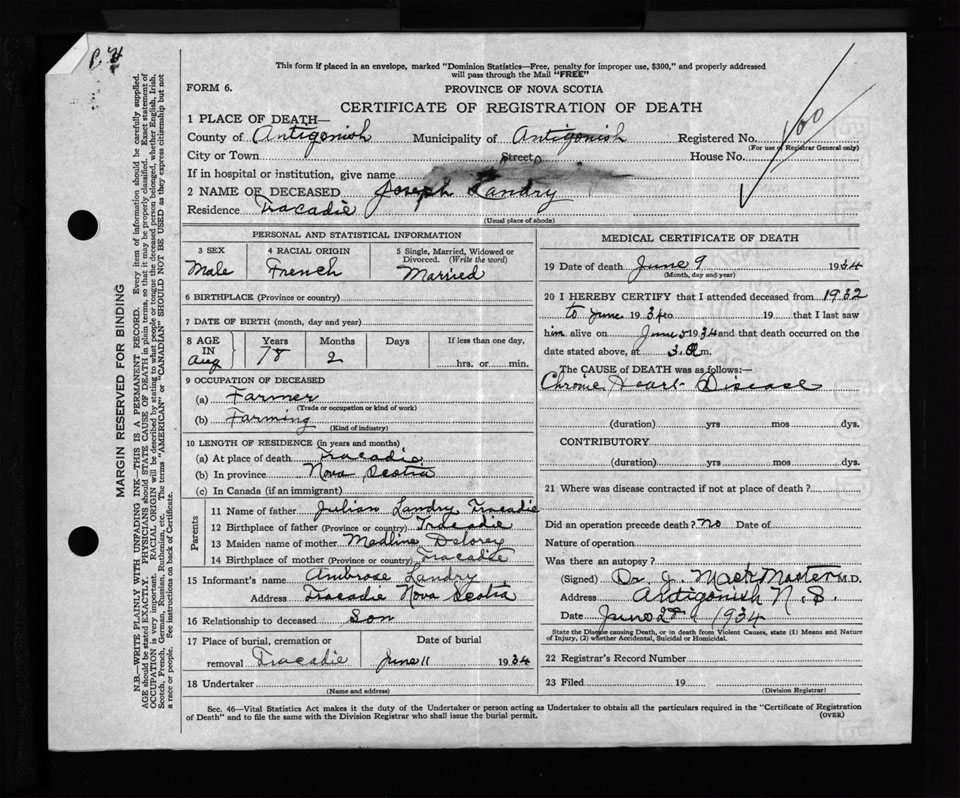 This form if placed in an envelope, marked "Dominion Statistics—Free, penalty for improper use, $300," and properly addressed
will pass through the Mail "FREE"
FORM 6.
PROVINCE OF NOVA SCOTIA
CERTIFICATE OF REGISTRATION OF DEATH
1 PLACE OF DEATH—
County of Antigonish Municipality of Antigonish Registered No. 100
(For use of Registrar General only)
City or Town Street House No.
If in hospital or institution, give name
2 NAME OF DECEASED Joseph Landry
Residence Tracadie
(Usual place of abode)
MARGIN RESERVED FOR BINDING
N.B.—WRITE PLAINLY WITH UNFADING INK—THIS IS A PERMANENT RECORD. Every item of information should be carefully supplied.
AGE should be stated EXACTLY. PHYSICIANS should STATE CAUSE OF DEATH in plain terms, so that it may be properly classified. Exact statement of
OCCUPATION is very important. RACIAL ORIGIN will be described by stating to what people or tongue the deceased person belonged, whether English, Irish,
Scotch, French, German, Russian, Ruthenian, etc. The terms "AMERICAN" or "CANADIAN" SHOULD NOT BE USED as they express citizenship but not
a race or people. See instructions on back of Certificate.
PERSONAL AND STATISTICAL INFORMATION
3 SEX 4 RACIAL ORIGIN 5 Single, Married, Widowed or
Divorced. (Write the word)
Male French Married
6 BIRTHPLACE (Province or country)
7 DATE OF BIRTH (month, day and year)
8 AGE IN Years Months Days If less than one day,
Aug 78 2 hrs. or min.
9 OCCUPATION OF DECEASED
(a) Farmer
(Trade or occupation or kind of work)
(b) Farming
(Kind of industry)
10 LENGTH OF RESIDENCE (in years and months)
(a) At place of death Tracadie
(b) In province Nova Scotia
(c) In Canada (if an immigrant)
Parents
11 Name of father Julian Landry Tracadie
12 Birthplace of father (Province or country) Tracadie
13 Maiden name of mother Madline Delorey
14 Birthplace of mother (Province or country) Tracadie
15 Informant's name Ambrose Landry
Address Tracadie Nova Scotia
16 Relationship to deceased Son
17 Place of burial, cremation or Date of burial
removal Tracadie June 11 1934
18 Undertaker
(Name and address)
MEDICAL CERTIFICATE OF DEATH
19 Date of death June 9 1934
(Month, day and year)
20 I HEREBY CERTIFY that I attended deceased from 1932
to June 1934 to 19 that I last saw
him alive on June 5 1934 and that death occurred on the
date stated above, at 3. m.
The CAUSE OF DEATH was as follows:—
Chronic Heart Disease
(duration) yrs mos dys.
CONTRIBUTORY
(duration) yrs. mos. dys.
21 Where was disease contracted if not at place of death?
Did an operation precede death? no Date of
Nature of operation
Was there an autopsy?
(Signed) Dr. J. MacMaster M.D.
Address Antigonish N.S.
Date June 1934
State the Disease causing Death, or in death from Violent Causes, state (1) Means and Nature
of Injury, (2) whether Accidental, Suicidal or Homicidal.
22 Registrar's Record Number
23 Filed 19
(Division Registrar)
Sec. 46—Vital Statistics Act makes it the duty of the Undertaker or person acting as Undertaker to obtain all the particulars required in the "Certificate of Registration
of Death" and to file the same with the Division Registrar who shall issue the burial permit. (OVER)